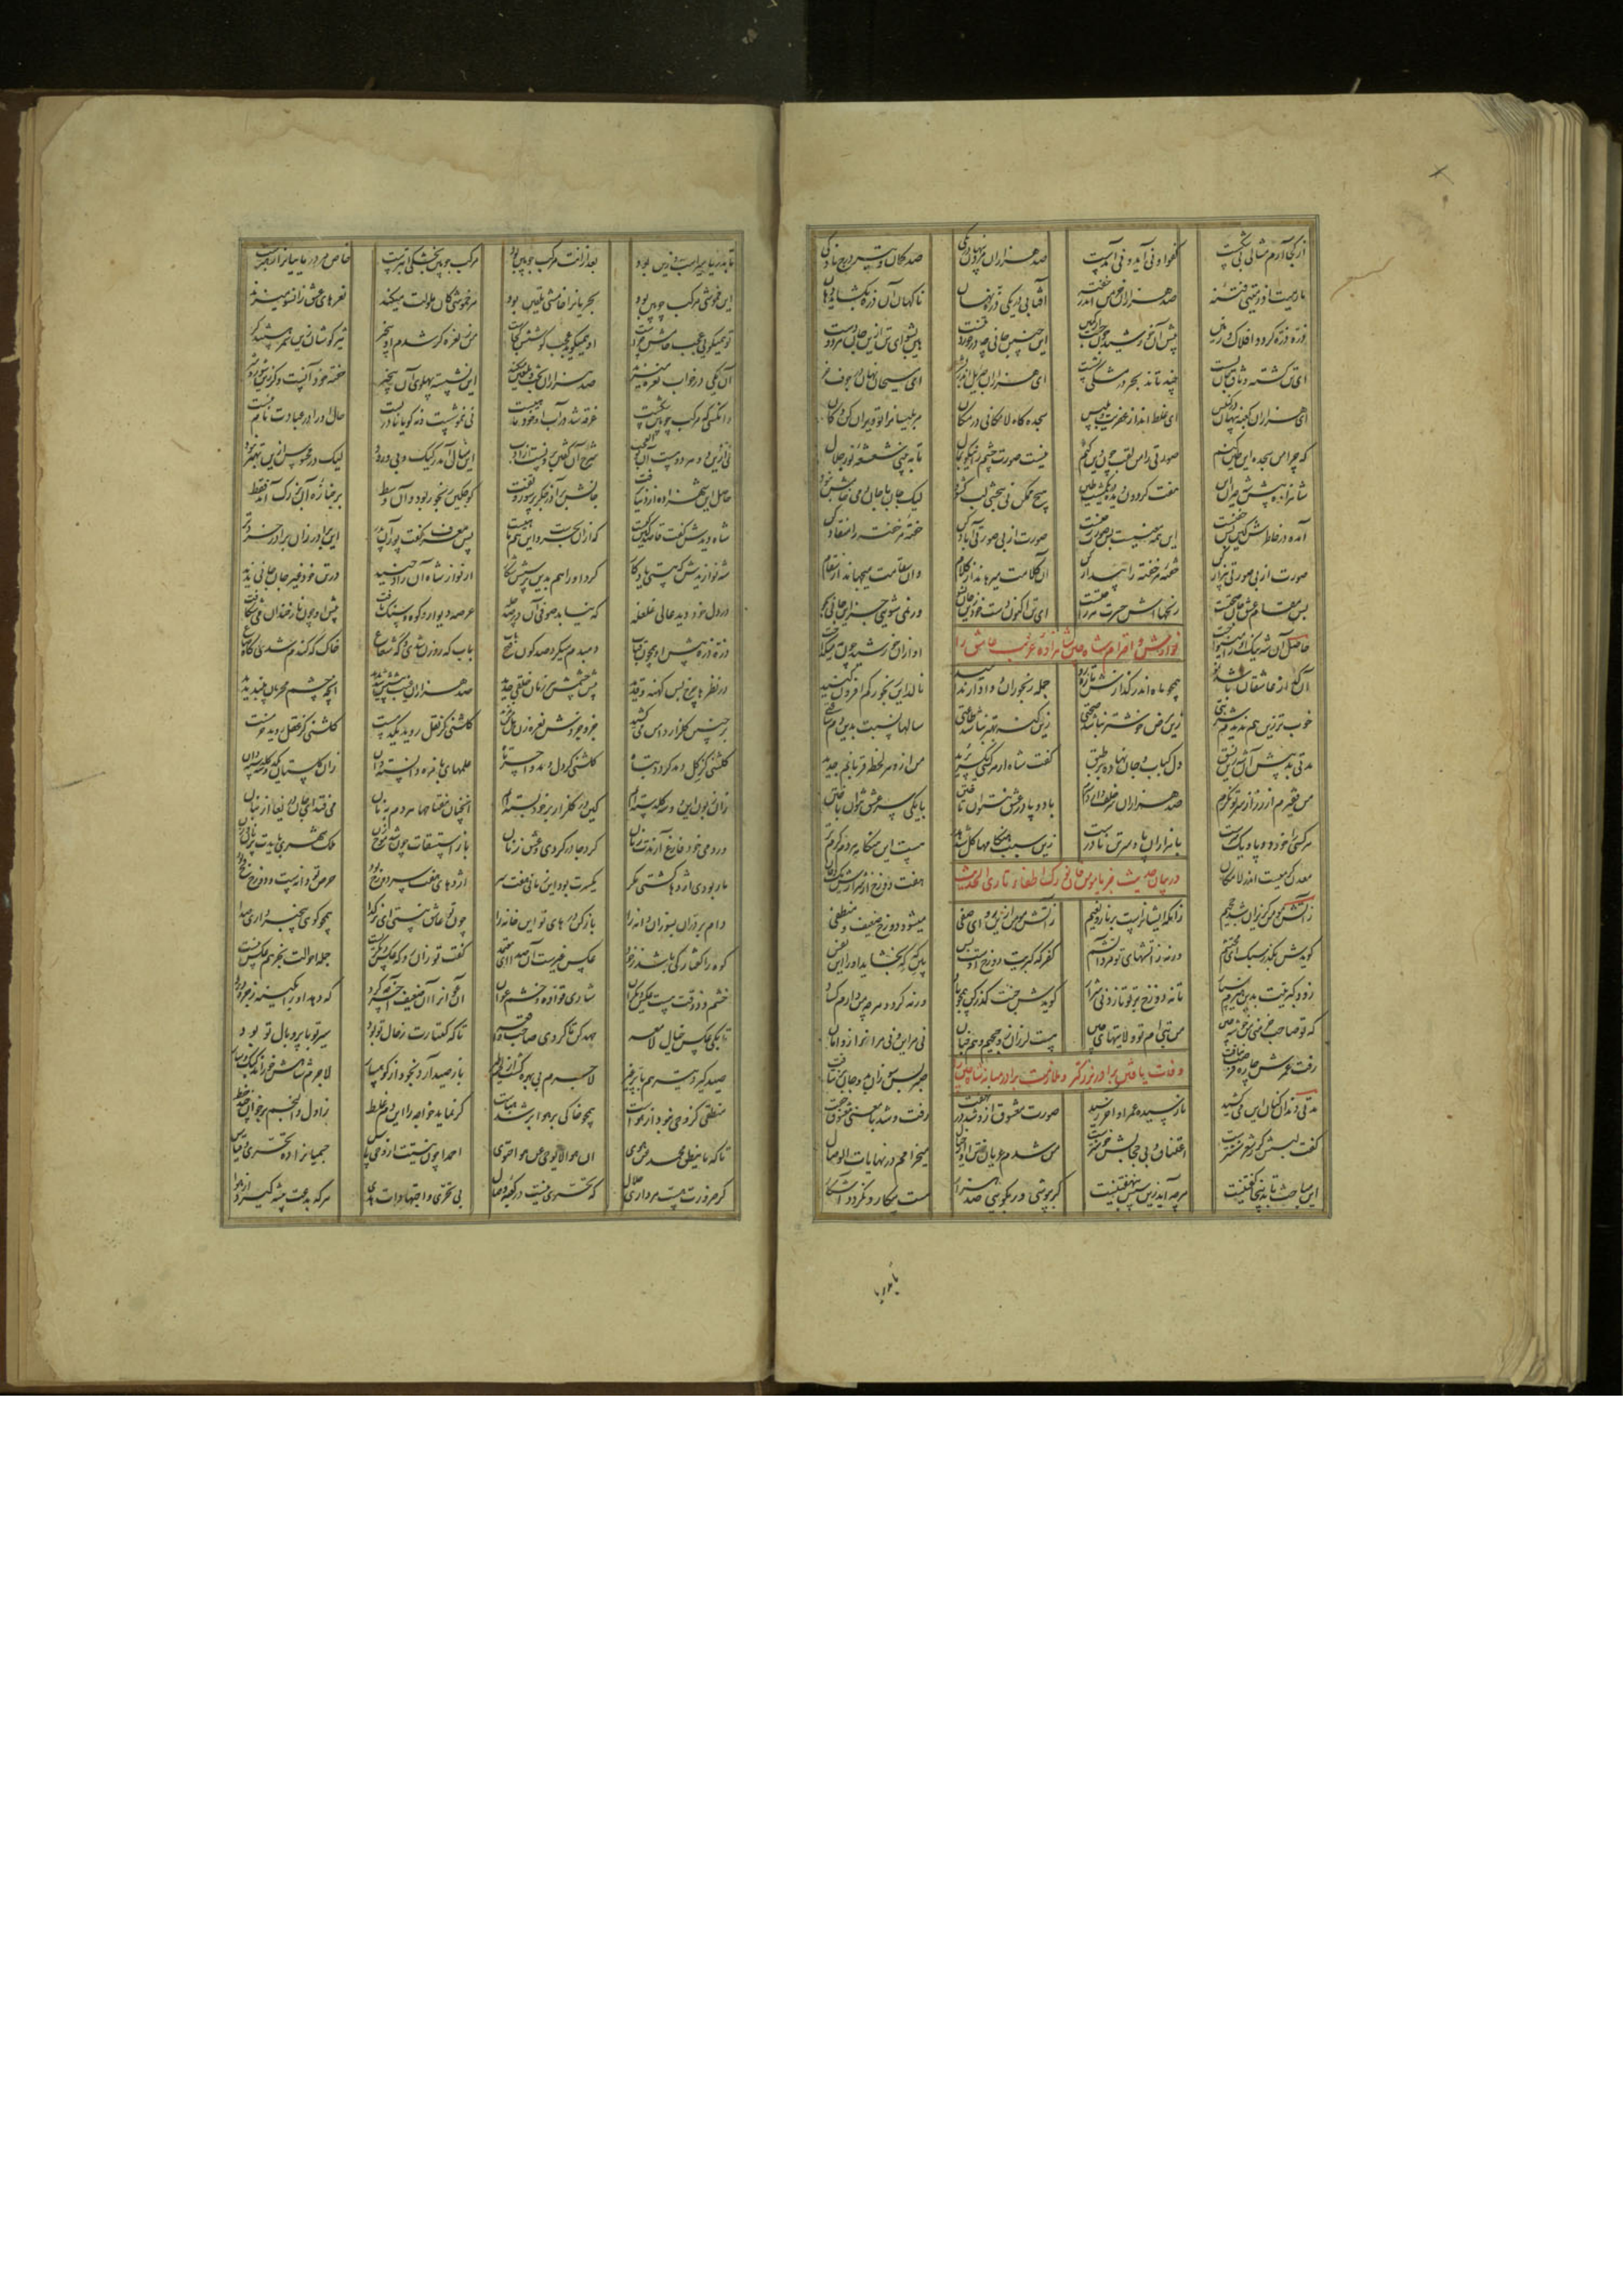 از کجا آرم مثالی بی شکست کفو او نی آید و نی آمدست صد هزاران مرد پنهان در یکی صد کمان و تیر درج ناوکی
مارمیت اذ رمیتی فتنه صد هزاران خرمن اندر حفنه آفتابی در یکی ذره نهان ناگهان آن ذره بگشاید دهان
ذره ذره گردد افلاک و زمین پیش آن خورشید چون جست از کمین این چنین جانی چه درخورد تنست هین بشو ای تن ازین جان هر دو دست
ای تن گشته وثاق جان بسست چند تاند بحر در مشکی نشست ای هزاران جبرئیل اندر بشر ای مسیحان نهان در جوف خر
ای هزاران کعبه پنهان در کنیس ای غلط انداز عفریت و بلیس سجده گاه لامکانی در مکان مر بلیسان را ز تو ویران دکان
که چرا من سجده این طین کنم صورتی را من لقب چون دین کنم نیست صورت چشم را نیکو بمال تا ببینی شعشعه نور جلال
شاهزاده پیش شه حیران این هفت گردون دیده در یک مشت طین هیچ ممکن نی ببحثی لب گشود لیک جان با جان دمی خامش نبود
آمده در خاطرش کین بس خفیست این همه معنیست پس صورت ز چیست صورت از بی صورتی آباد کن خفته مر خفته را منقاد کن
صورت از بی صورتی بیزار کن خفته مر خفته را بیدار کن آن کلامت میرهاند از کلام وان سقامت میجهاند از سقام
پس سقام عشق جان صحتست رنجهااش حسرت هر راحتست ای تن اکنون دست خود زین جان بشو ور نمی شویی جز این جانی بجو
حاصل آن شه نیک او را می نواخت نواختن و احترام شاه چین شاهزاده غریب عاشق را او ازان خورشید چون مه میگداخت
آن گداز عاشقان باشد نمو همچو ماه اندر گدازش تازه رو جمله رنجوران دوا دارند امید نالد این رنجور کم افزون کنید
خوب تر زین سم ندیدم شربتی زین مرض خوشتر نباشد صحتی زین گنه بهتر نباشد طاعتی سالها نسبت بدین دم ساعتی
مدتی بد پیش آن شه زین نسق دل کباب و جان نهاده بر طبق گفت شاه از هر کسی یک سر برید من ازو هر لحظه قربانم جدید
من فقیرم از زر از سر محتشم صد هزاران سر خلف دارد سرم با دو پا در عشق نتوان تاختن با یکی سر عشق نتوان باختن
هر کسی را خود دو پا و یک سرست با هزاران پا و سر تن نادرست زین سبب هنگامها شد کل هدر هست این هنگامه هر دم گرم تر
معدن گرمیست اندر لامکان هفت دوزخ از شرارش یک دخان
در بیان حدیث جز یا مؤمن فان نورک اطفاء ناری الحدیث
زآتش مومن ازین رو ای صفی میشود دوزخ ضعیف و منطفی
گویدش بگذر سبک ای محتشم ورنه ز آتشهای تو مرد آتشم کفر که کبریت دوزخ اوست بس
زود کبریت بدین تا نه دوزخ بر تو تازد نی شرار گویدش جنت گذر کن همچو باد ورنه گردد هر چه من دارم کساد
که تو صاحب خرمنی من خوشه چین من بتی ام تو ولایتهای چین هست لرزان زو جحیم و هم جنان نی مر این را نی مر آنرا زو امان
رفت عمرش چاره را فرصت نیافت وفات یافتن برادر بزرگتر صبر بس سوزان بد و جان بر نتافت
مدتی دندان کنان این می کشید نارسیده عمر او آخر رسید صورت معشوق ازو شد در نهفت رفت و شد با معنی معشوق جفت
گفت لبسش گر ز شعر و ششترست اعتناق بی حجابش خوشترست من شدم عریان ز تن او از خیال میخرامم در نهایات الوصال
این مباحث تا بدینجا گفتنیست هر چه آید زین سپس بنهفتنیست گر بپوشی ور بکوشی صد هزار هست بیکار و نگردد آشکار
تا بدریا
تا بدریا سیر اسب و زین بود بعد ازانت مرکب چوبین بود مرکب چوبین بخشکی ابترست خاص مر دریاییانرا رهبرست
این خموشی مرکب چوبین بود بحریانرا خامشی تلقین بود هر خموشی کان ملولت میکند نعرهای عشق زانسو میزند
تو همیگویی عجب خامش چراست او همیگوید عجب گوشش کجاست من ز نعره کر شدم او بیخبر تیزگوشان زین سمر هستند کر
آن یکی در خواب نعره میزند صد هزاران بحث و تلقین میکند این نشسته پهلوی آن بیخبر خفته خود آنست و کر زان شور و شر
وانکسی کش مرکب چوبین شکست غرقه شد در آب او خود ماهیست نی خموشست و نه گویا نادریست حال او را در عبارت نام نیست
نی ازین دو هر دو هست آن بوالعجب شرح این گفتن برونست از ادب این مثال آمد رکیک و بی ورود لیک در محسوس ازین بهتر نبود
کوچکین رنجور بود و آن وسط بر جنازه آن بزرگ آمد فقط
شاه دیدش گفت قاصد کین کیست که از آن بحرست و این هم ماهیست پس معرف گفت پور آن پدر این برادر زان برادر خردتر
شه نوازیدش که هستی یادگار کرد او را هم بدین پرسش شکار از نواز شاه آن زار حنیذ در تن خود غیر جان جانی بدید
در دل خود دید عالی غلغله که نیابد صوفی آن در صد چله عرصه و دیوار و کوه سنگ بافت پیش او چون نار خندان می شکافت
ذره ذره پیش او همچون قباب دم بدم میکرد صدگون فتح باب باب گه روزن شدی گاهی شعاع خاک گه گندم شدی و گاه صاع
در نظرها چرخ بس کهنه و قدید پیش چشمش هر زمان خلقی جدید
گلشنی کز بقل روید یکدمست گلشنی کز عقل روید خرمست
گلشنی کز گل دمد گردد تباه گلشنی کز دل دمد وافرحتاه علمهای با مزه دانسته مان زان گلستان یک دو سه گلدسته دان
زان زبون این دو سه گلدسته ایم که در گلزار بر خود بسته ایم آنچنان مفتاحها هر دم بنان می فتد ای جان دریغا از بنان
ور دمی هم فارغ آرندت ز نان گرد چادر گردی و عشق زنان
مار بودی اژدها گشتی مگر یک سرت بود این زمانی هفت سر اژدهای هفت سر دوزخ بود حرص تو دانه ست و دوزخ فخ بود
دام را بدران بسوزان دانه را باز کن درهای نو این خانه را چون تو عاشق نیستی ای نرگدا همچو کوهی بیخبر داری صدا
کوه را گفتار کی باشد ز خود عکس غیرست آن صدا ای معتمد گفت تو زان رو که عکس دیگریست جمله احوالت بجز هم عکس نیست
خشم و ذوقت هست عکس دیگران شادی قواده و خشم عوان
تا بکی عکس خیال لامعه جهد کن تا گرددت این واقعه تا که گفتارت ز حال تو بود سیر تو با پر و بال تو بود
صید گیرد تیر هم با پر غیر لاجرم بی بهره است از لحم طیر باز صید آرد بخود از کوهسار لاجرم شاهش خوراند کبک و سار
منطقی کز وحی نبود از هواست همچو خاکی در هوا و در هباست گر نماید خواجه را این دم غلط ز اول والنجم بر خوان چند خط
تا که ما ینطق محمد عن هوی ان هو الا بوحی احتوی احمدا چون نیستت از وحی یاس جسمیانرا ده تحری و قیاس
کز ضرورت هست مرداری حلال که تحری نیست در کعبه وصال بی تحری و اجتهادات هدی هر که بدعت پیشه گیرد از هوا